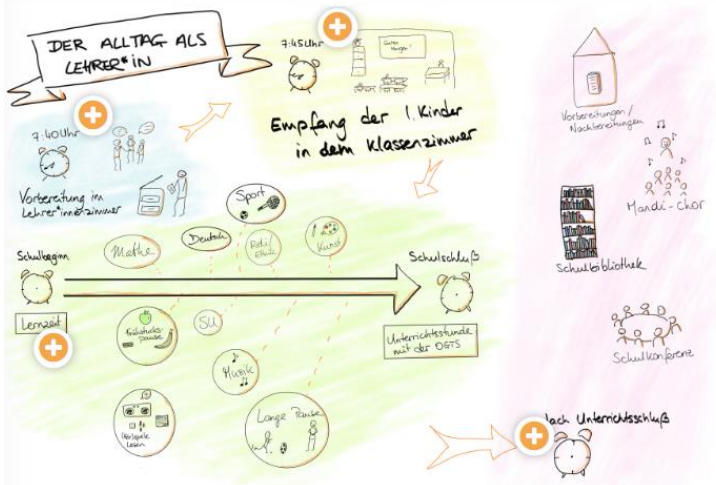 DER ALLTAG ALS
LEHRER*iN
7:40 Uhr
Vorbereitung im
Lehrer*innenzimmer
7:45 Uhr
Guten
Morgen!
Empfang der 1. Kinder
in dem Klassenzimmer
Schulbeginn
Lernzeit
Mathe
Deutsch
Sport
Reli/
Ethik
Kunst
Frühstücks-
pause
SU
Musik
Hörspiele
Lesen
Lange Pause
Schulschluß
Unterrichtsstunde
mit der OGTS
Vorbereitungen/
Nachbereitungen
Mandi-Chor
Schulbibliothek
Schulkonferenz
Nach Unterrichtsschluß